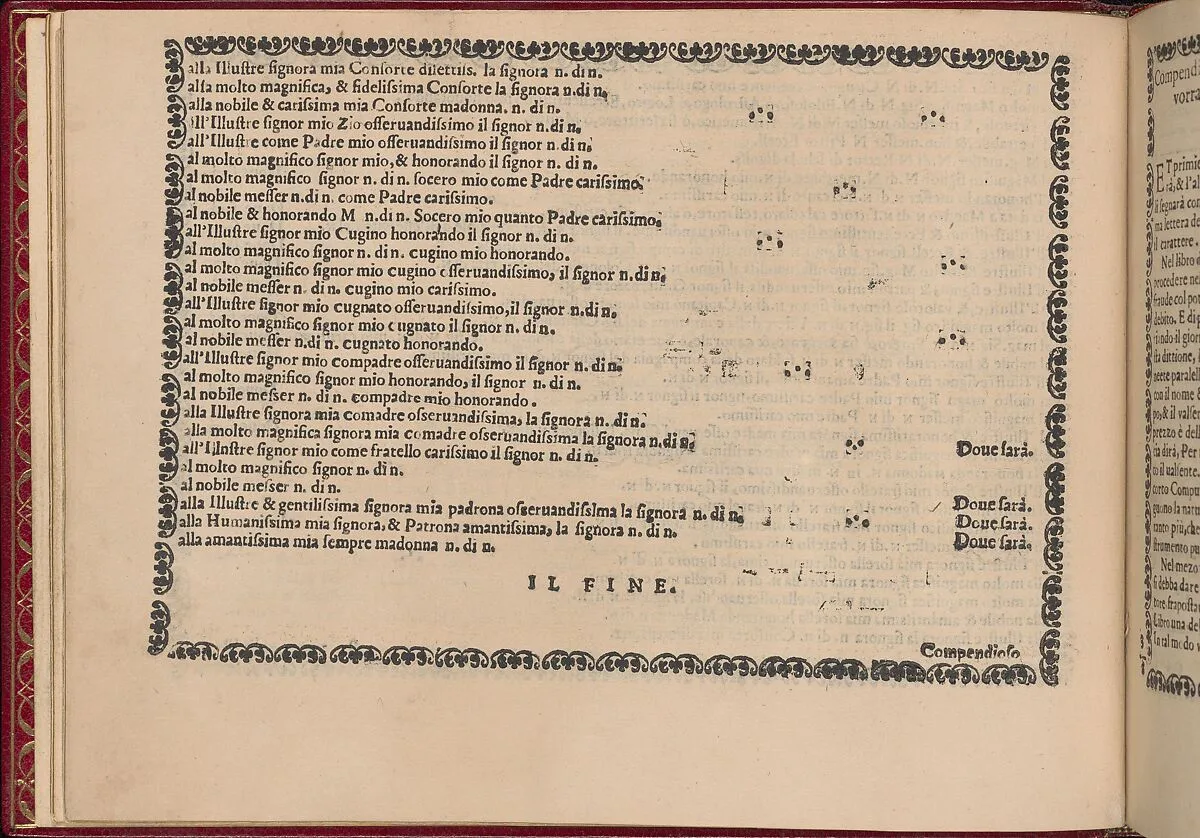 alla Illuſtre ſignora mia Conſorte dilettiſs. la ſignora n. di n.
alla molto magnifica, & fideliſsima Conſorte la ſignora n.di n.
alla nobile & cariſsima mia Conſorte madonna. n. di n.
all'Illuſtre ſignor mio Zio oſſeruandiſsimo il ſignor n.di n.
all'Illuſtre come Padre mio oſſeruandiſsimo il ſignor n.di n.
al molto magnifico ſignor mio, & honorando il ſignor n. di n.
al molto magnifico ſignor n. di n. ſocero mio come Padre cariſsimo.
al nobile meſſer n.di n. come Padre cariſsimo.
al nobile & honorando M n.di n. Socero mio quanto Padre cariſsimo.
all'Illuſtre ſignor mio Cugino honorando il ſignor n. di n.
al molto magnifico ſignor n. di n. cugino mio honorando.
al molto magnifico ſignor mio cugino oſſeruandiſsimo, il ſignor n.di n.
al nobile meſſer n. di n. cugino mio cariſsimo.
all'Illuſtre ſignor mio cugnato oſſeruandiſsimo, il ſignor n.di n.
al molto magnifico ſignor mio cugnato il ſignor n. di n.
al nobile meſſer n.di n. cugnato honorando.
all'Illuſtre ſignor mio compadre oſſeruandiſsimo il ſignor n. di n.
al molto magnifico ſignor mio honorando, il ſignor n. di n.
al nobile meſſer n. di n. compadre mio honorando.
alla Illuſtre ſignora mia comadre oſſeruandiſsima, la ſignora n. di n.
alla molto magnifica ſignora mia comadre oſſeruandiſsima la ſignora n.di n.
all'Illnſtre ſignor mio come fratello cariſsimo il ſignor n. di n. Doue ſarà.
al molto magnifico ſignor n. di n.
al nobile meſſer n. di n.
alla Illuſtre & gentiliſsima ſignora mia padrona oſſeruandiſsima la ſignora n. di n. Doue ſarà.
alla Humaniſsima mia ſignora, & Patrona amantiſsima, la ſignora n. di n. Doue ſarà.
alla amantiſsima mia ſempre madonna n. di n. Doue ſarà.
IL FINE.
Compendioſo
Compendi
vorra
ET primie
rà, & l'al
ſi ſegnarà con
ma lettera de
il carattere.
Nel libro
procedere nel
fraude col pot
debito. E di p
tando il gior
ſta dittione,
neete paralell
con il nome
po, & il valſen
prezzo è dell
ſia dirà, Per
to il ualſente.
corto Comput
guono la natu
tanto più, che
ſtrumento pu
Nel mezo
ſi debba dare
tore frapoſta
Libro una del
ſu tal modo v